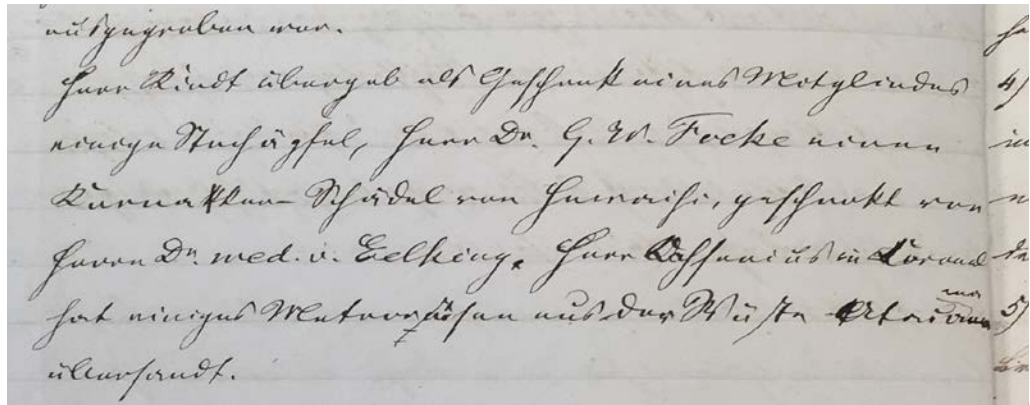 ausgegraben war.
Herr Kindt übergab als Geschenk eines Mitgliedes
einige Stechäpfel, Herr Dr. G. W. Focke einen
Schädel von Hawaihi, geschenkt von
Herrn Dr. med. v. Eelking. Herr Ochsenius in
hat einiges Meteoreisen aus der Wüste
übersandt.
4)
5)